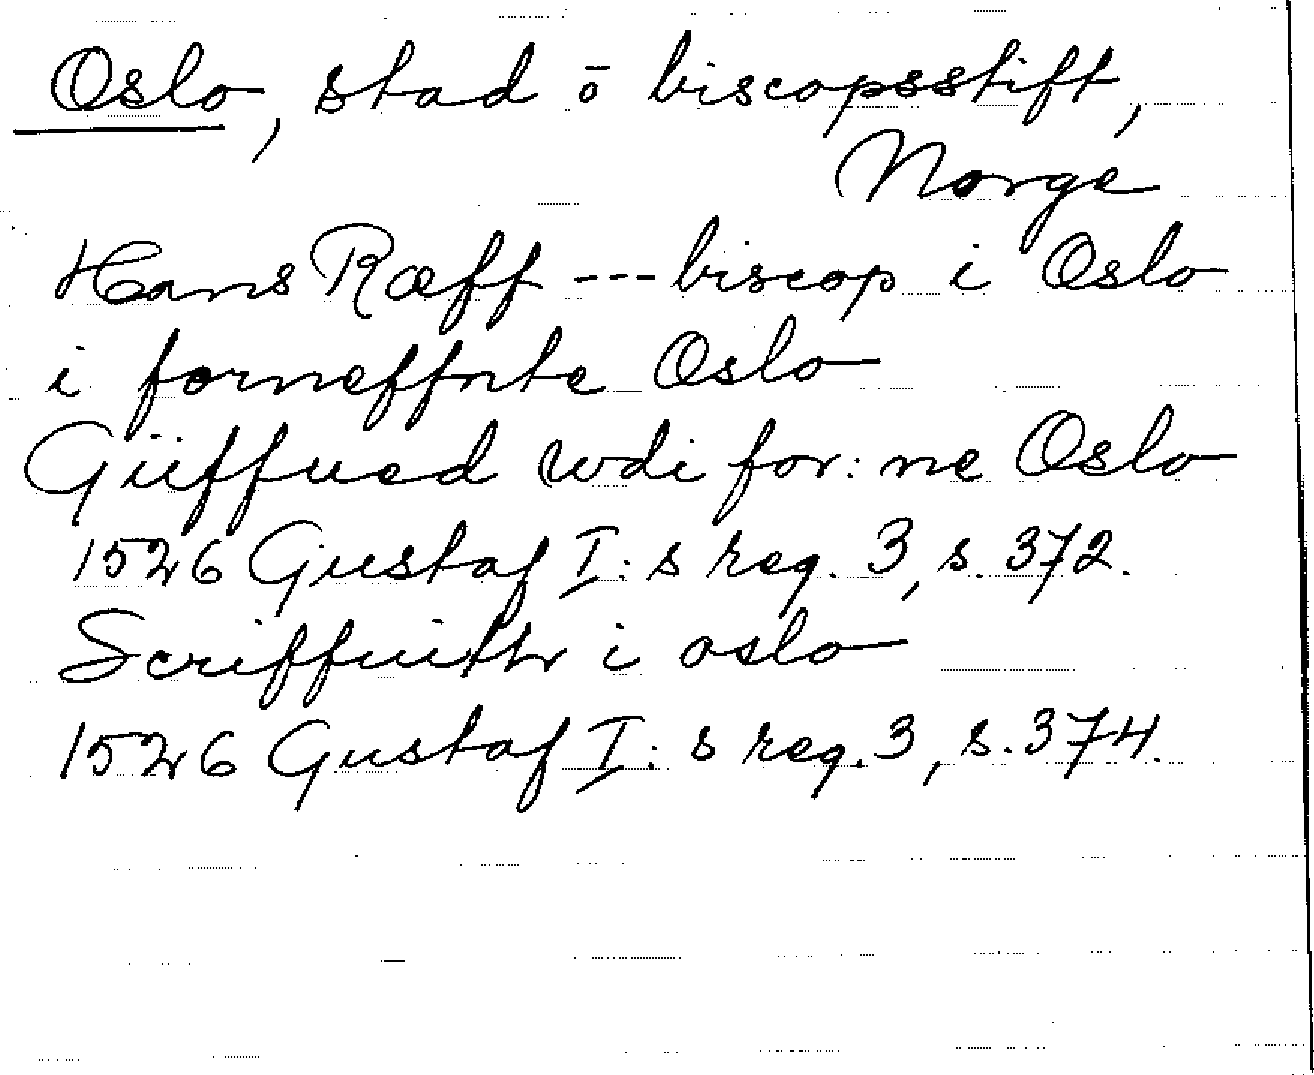 Oslo, stad ō biscopsstift,
Norge
Hans Ræff --- biscop i Oslo
i forneffnte Oslo
Güffued wdi for: ne Oslo
1526 Gustaf I: s reg. 3, s. 372.
Scriffuith i oslo
1526 Gustaf I: s reg. 3, s. 374.